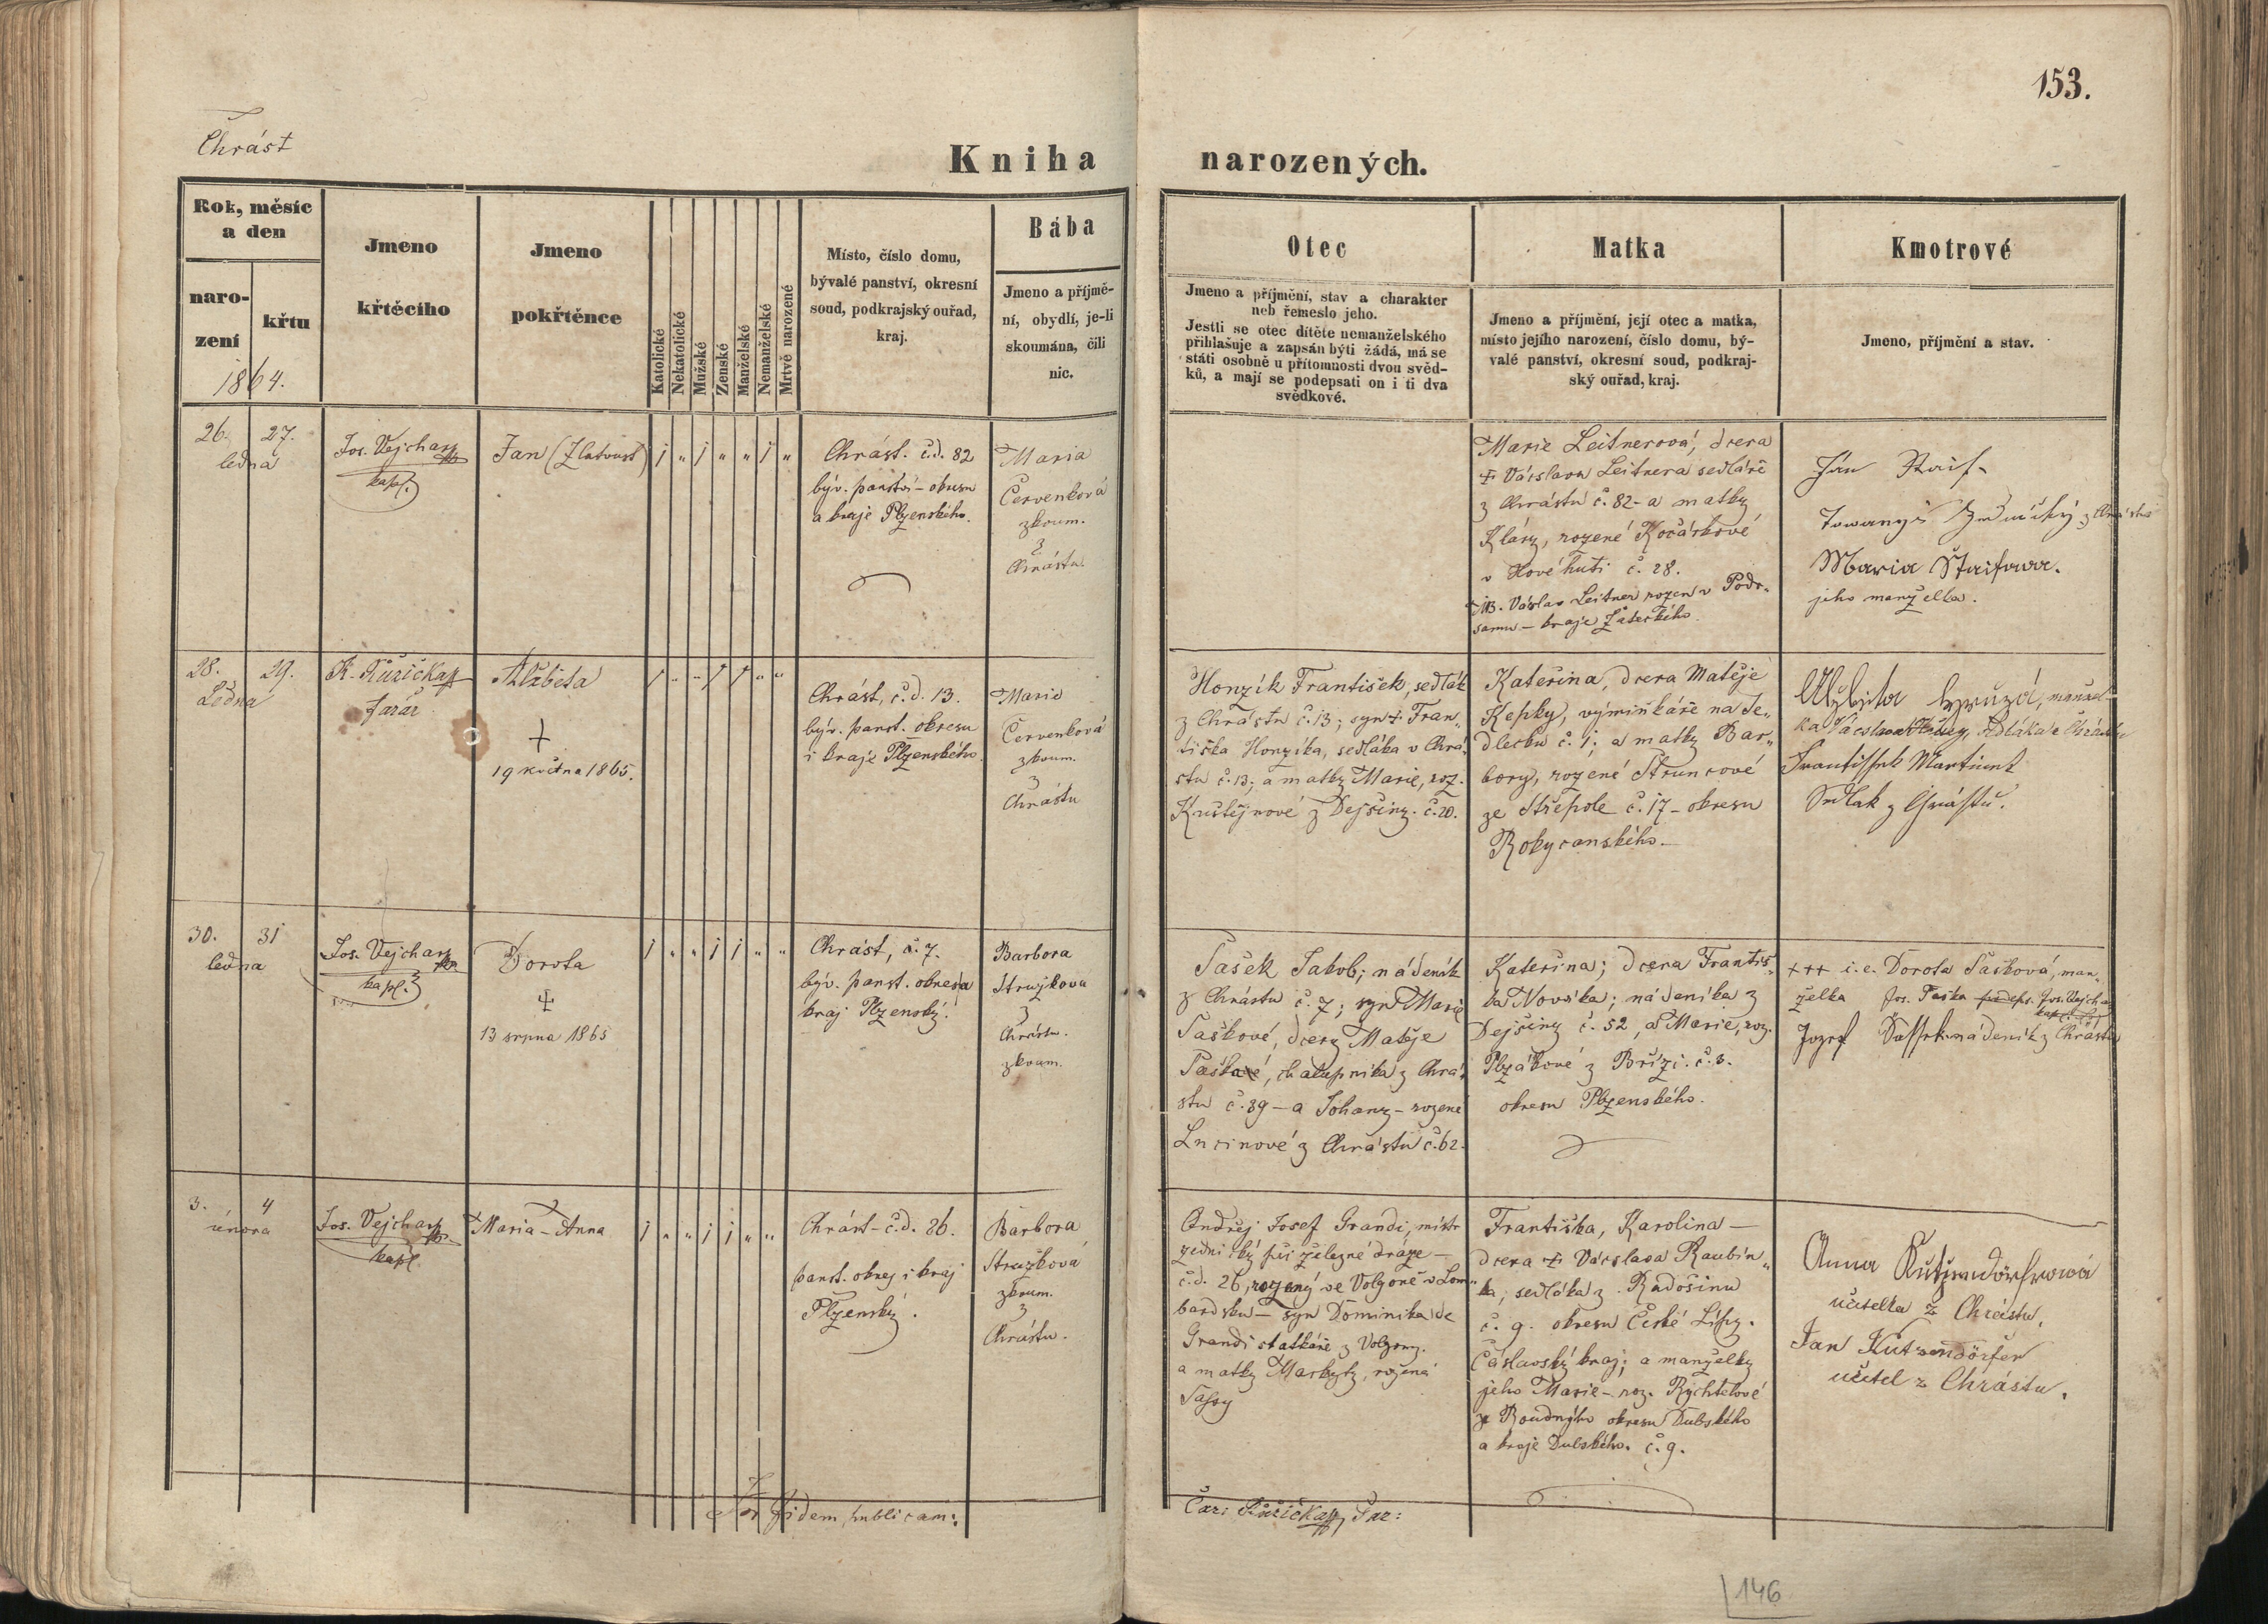 153.
Chrást
Kniha narozených.
Rok, měsíc
a den
naro-
zení
křtu
1864.
Jmeno
křtěcího
Jmeno
pokřtěnce
Katolické
Nekatolické
Mužské
Ženské
Manželské
Nemanželské
Mrtvě narozené
Místo, číslo domu,
bývalé panství, okresní
soud, podkrajský ouřad,
kraj.
Bába
Jmeno a příjmě-
ní, obydlí, je-li
skoumána, čili
nic.
Otec
Jmeno a příjmění, stav a charakter
neb řemeslo jeho.
Jestli se otec dítěte nemanželského
přihlašuje a zapsán býti žádá, má se
státi osobně u přítomnosti dvou svěd-
ků, a mají se podepsati on i ti dva
svědkové.
Matka
Jmeno a příjmění, její otec a matka,
místo jejího narození, číslo domu, bý-
valé panství, okresní soud, podkraj-
ský ouřad, kraj.
Kmotrové
Jmeno, příjmění a stav.
26. 27.
ledna
Jos. Vejchar
kapl.
Jan (Zlatoust)
j " j " " j "
Chrást. č.d. 82
býv. panství - okresu
a kraje Plzenského.
Maria
Červenková
zkoum.
z
Chrástu.
Marie Leitnerová, dcera
† Václava Leitnera sedláře
z Chrástu č. 82 - a matky
Kláry, rozené Kočárkové
v Nové huti č. 28.
NB. Václav Leitner rozen v Podr-
samu - kraje Žateckého.
Ján Staif
z Chrástu
Maria Štaifowa.
jeho manželka.
28. 29.
Ledna
K. Růžička
farář
Alžběta
†
19 května 1865.
1 " " 1 1 " "
Chrást, č.d. 13.
býv. panst. okresu
i kraje Plzenského.
Marie
Červenková
zkoum.
z
Chrástu
Honzík František, sedlák
z Chrástu č. 13; syn † Fran-
tiška Honzíka, sedláka v Chrá-
stu č. 13; a matky Marie, roz.
z Dejšiny. č. 20.
Kateřina, dcera Matěje
Kepky, výminkáře na Se-
dlecku č. 1; a matky Bar-
bory, rozené Štruncové
ze Střepole č. 17 - okresu
Rokycanského -
Alžbjta manžel-
ka Václava sedláka z Chrástu
Frantissek Martinek
Sedlak z Chrástu.
30. 31
ledna
Jos. Vejchar
kapl.
Dorota
†
13 srpna 1865
j " " j j " "
Chrást, č. 7.
býv. panst. okres a
kraj Plzenský.
Barbora
Stružková
z
Chrástu.
zkoum.
Sašek Jakob; nádeník
z Chrástu č. 7; syn Marie
Saškové, dcery Matěje
Saška, chalupníka z Chrá-
stu č. 39 - a Johany - rozené
Lucinové z Chrástu č. 62.
Kateřina; dcera Františ-
ka Nováka; nádeníka z
Dejšiny č. 52, a Marie, roz.
Plzákové z Břízi. č. 3.
okresu Plzenského.
+++ i.e. Dorota Sašková, man-
želka Jos. Saška podeps. Jos. Vejchar
kapl.
Jozef Sassek nádeník z Chrástu
3. 4
února
Jos. Vejchar
kapl.
Maria - Anna
j " " j j " "
Chrást - č.d. 26.
panst. okrej i kraj
Plzenský.
Barbora
Stružková
zkoum.
z
Chrástu.
Ondřej Josef Grandi, mistr
zednický při železné dráze -
č.d. 26, rozený ve Volgoně v Lom-
bardsku - syn Dominika de
Grandi statkáře z Volgony.
a matky Markyty, rozená
Sassy
Františka, Karolina -
dcera † Václava Raubín-
ka, sedláka z Radošinu
č. 9. okresu České Lípy.
Čáslavský kraj; a manželky
jeho Marie - roz. Rychtelové
z Roudného okresu Dubského
a kraje Dubského. č. 9.
Anna Kutzendörfrowá
učitelka z Chrástu.
Jan Kutzendörfer
učitel z Chrástu.
In fidem publicam:
Car: Růžička, Far:
146